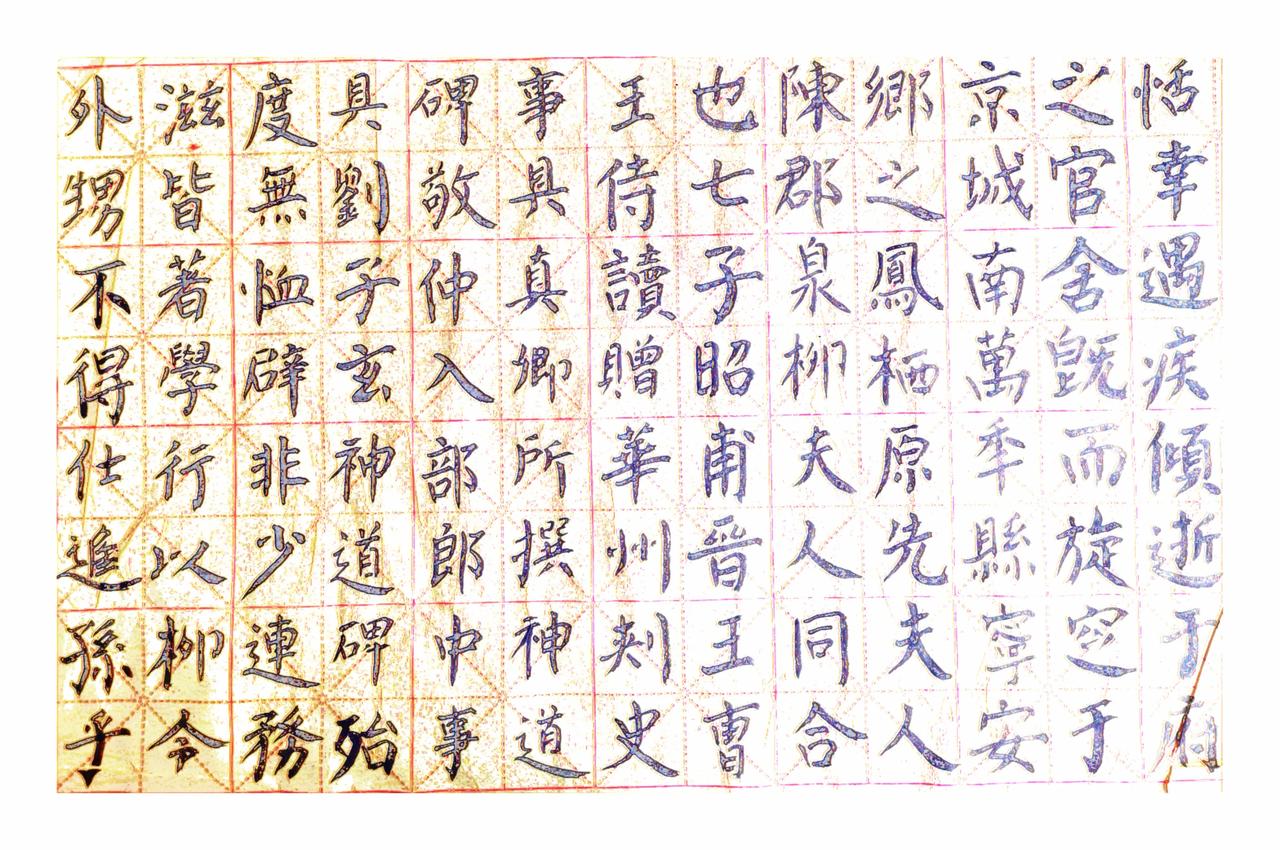 恬幸遇疾傾逝于府
之官舍既而旋窆于
京城南萬年縣寧安
鄉之鳳栖原先夫人
陳郡泉柳夫人同合
也七子昭甫晉王曹
王侍讀贈華州刾史
事具真卿所撰神道
碑敬仲入部郎中事
具劉子玄神道碑殆
度無恤辟非少連務
滋皆著學行以柳令
外甥不得仕進孫乎